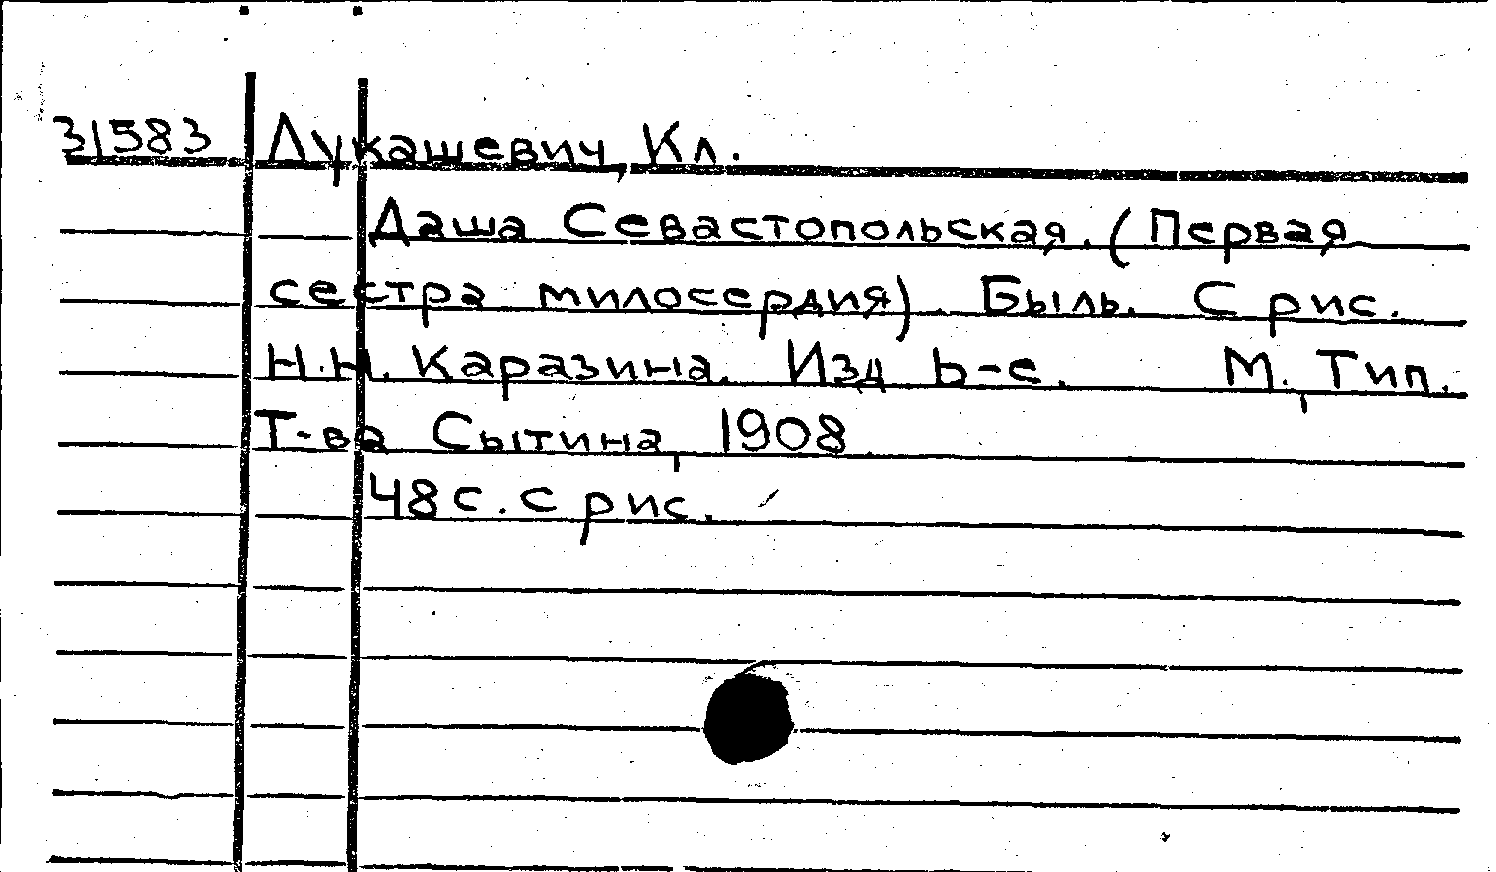 31583 Лукашевич, Кл.
Даша Севастопольская. (Первая
сестра милосердия). Быль. С рис.
Н.Н. Каразина. Изд 6-е. М., Тип.
Т-ва Сытина, 1908
48 с. с рис.